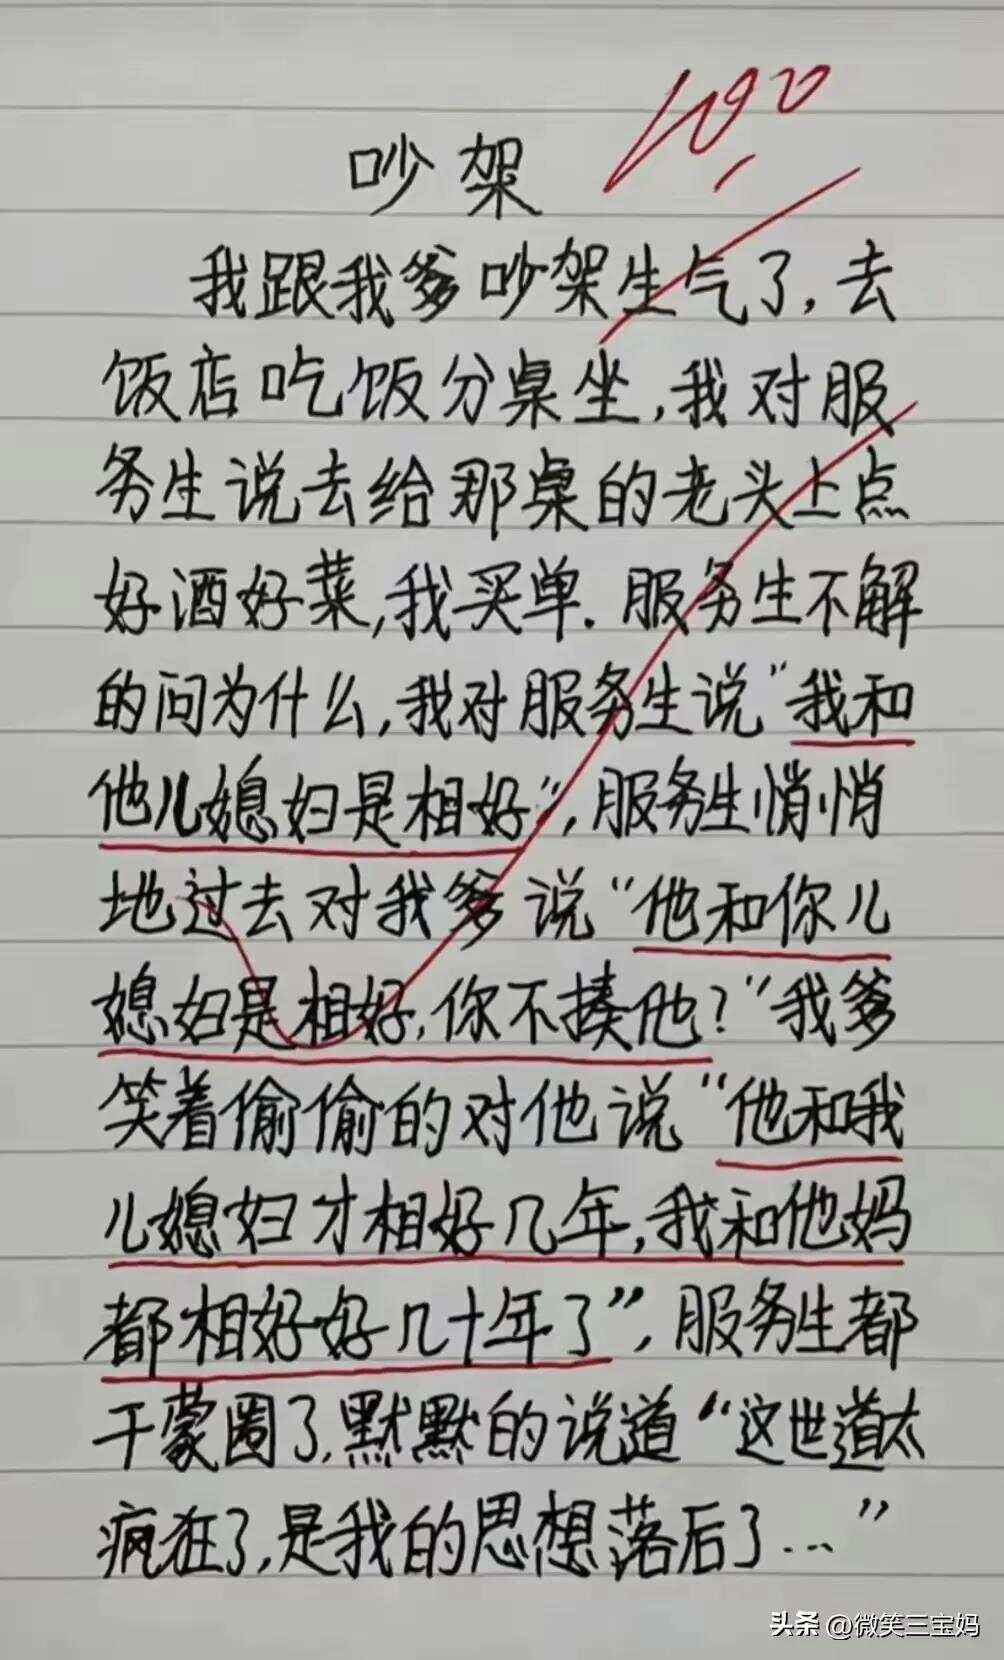 100
吵架
我跟我爹吵架生气了,去
饭店吃饭分桌坐,我对服
务生说去给那桌的老头上点
好酒好菜,我买单.服务生不解
的问为什么,我对服务生说"我和
他儿媳妇是相好",服务生悄悄
地过去对我爹说"他和你儿
媳妇是相好,你不揍他?"我爹
笑着偷偷的对他说"他和我
儿媳妇才相好几年,我和他妈
都相好好几十年了",服务生都
干蒙圈了,默默的说道"这世道太
疯狂了,是我的思想落后了..."
头条 @微笑三宝妈